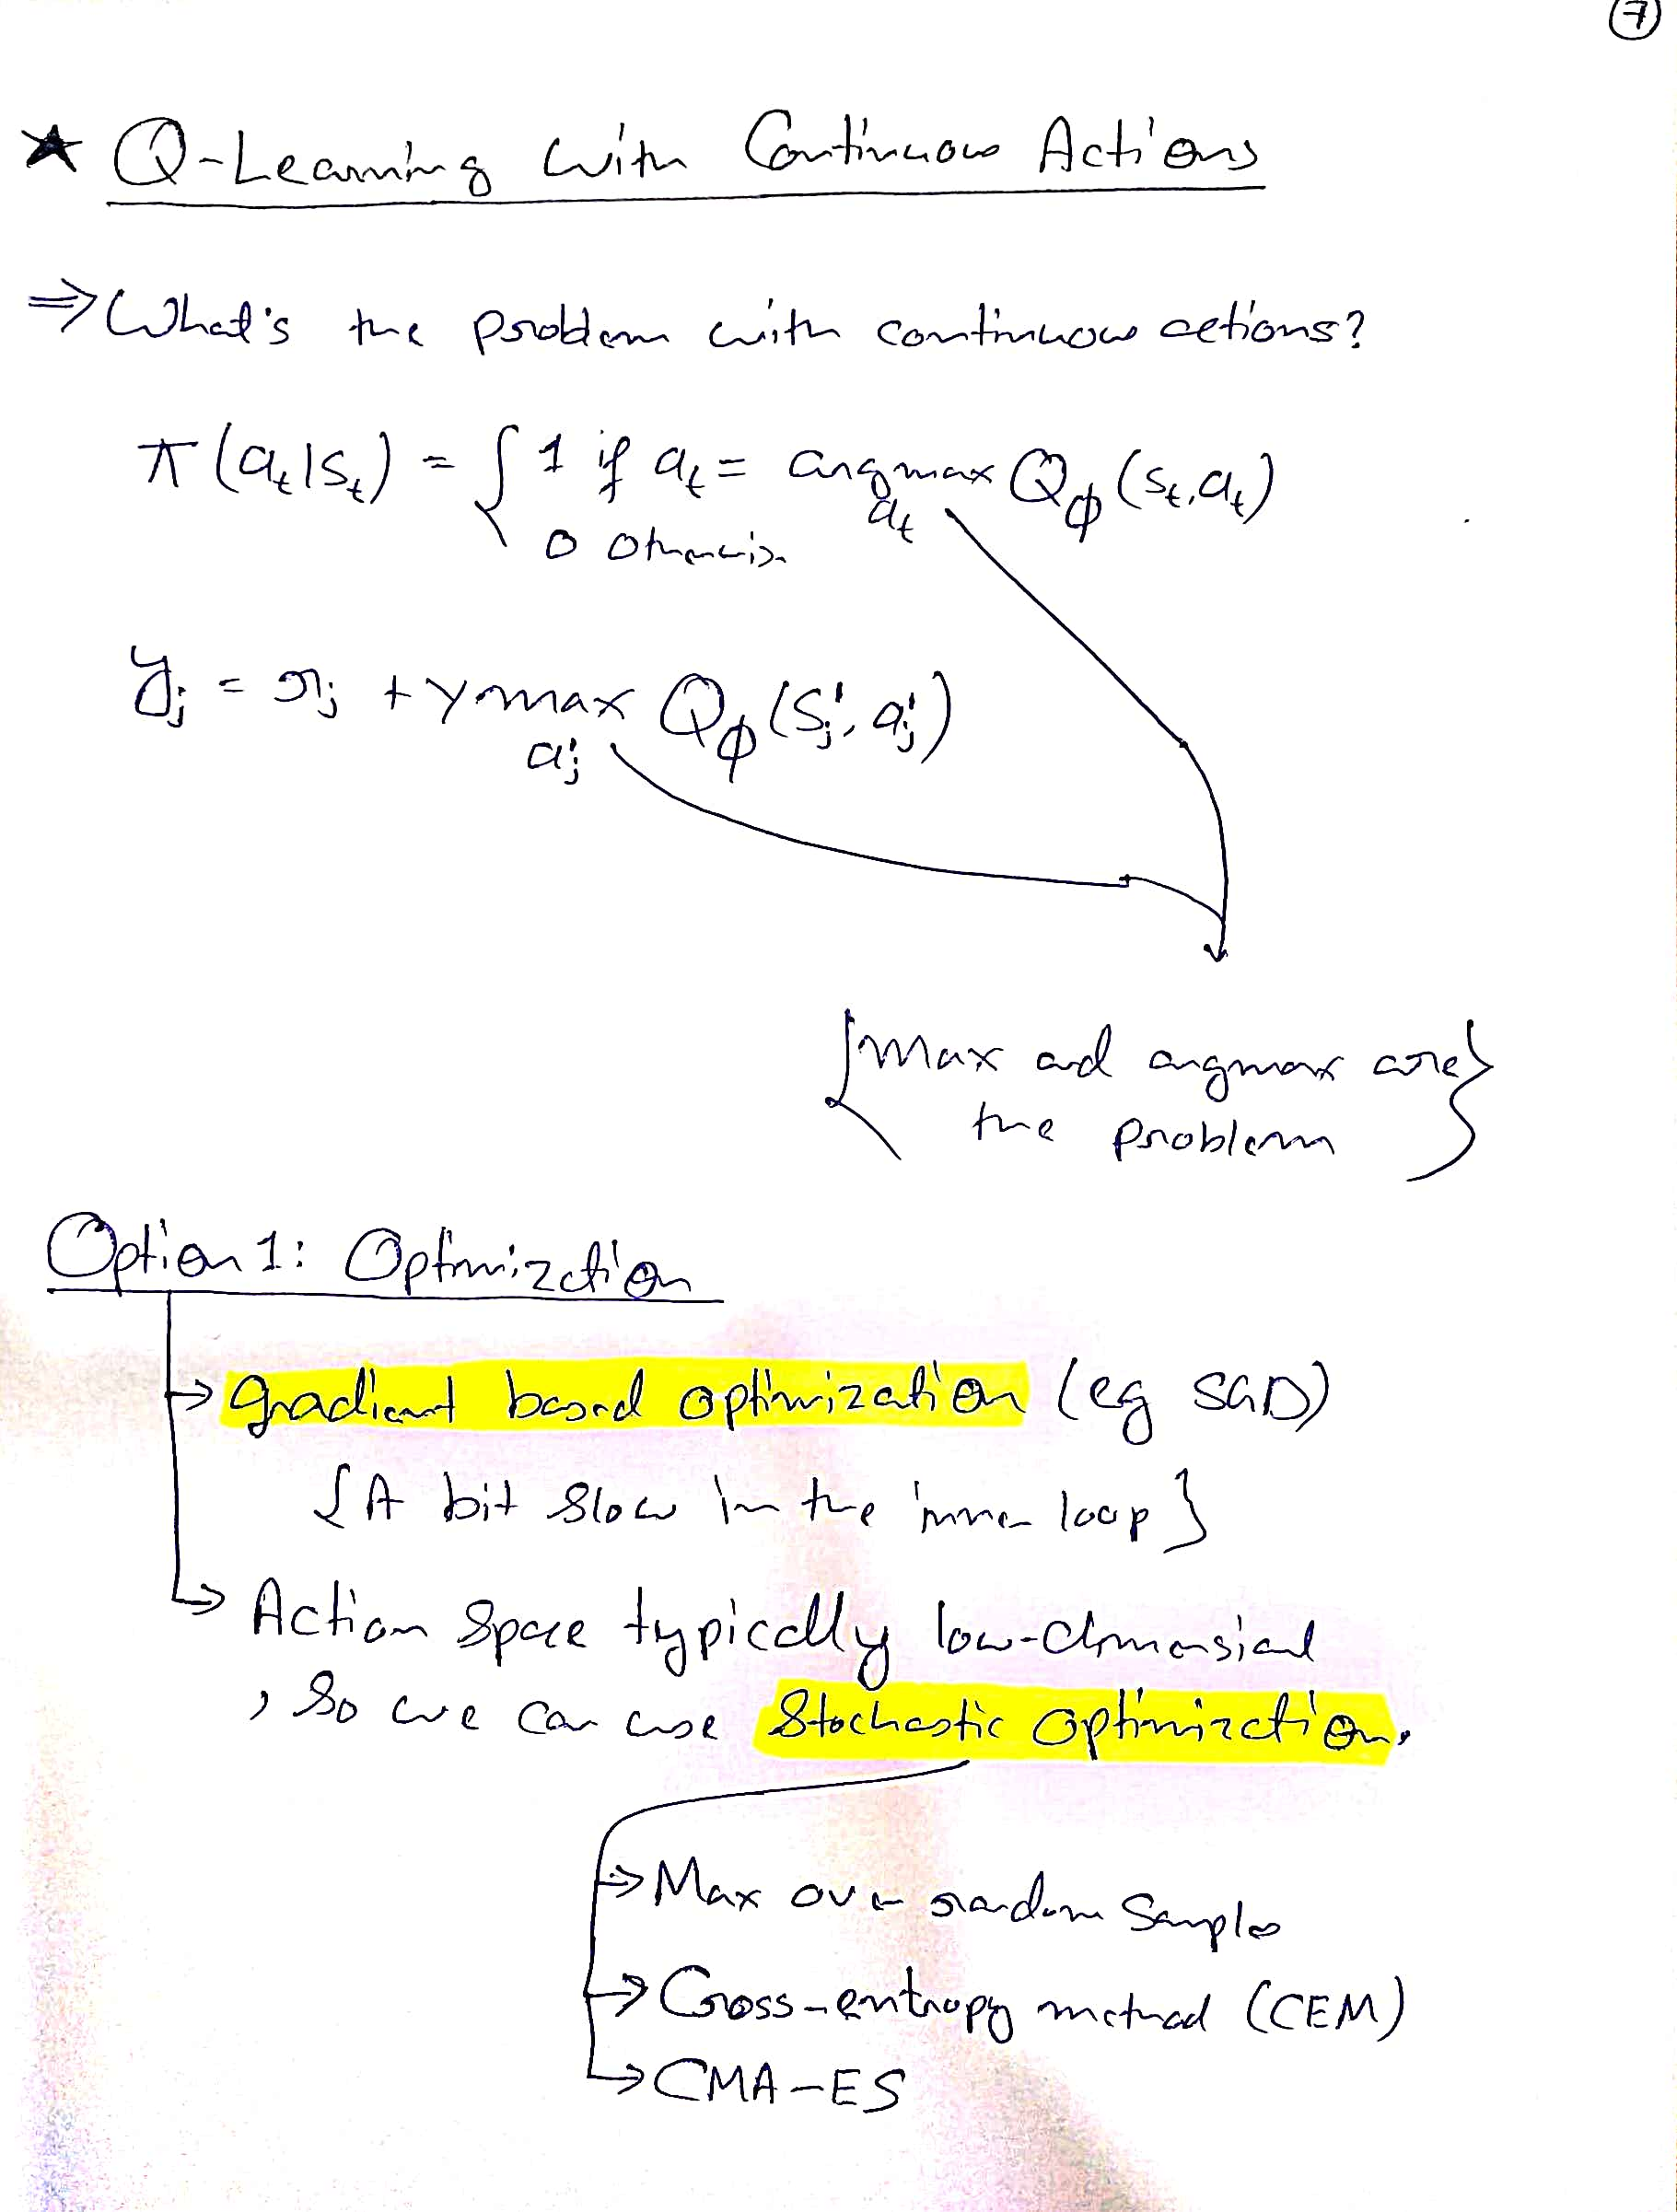 7
★ Q-Learning with Continuous Actions
⇒ What's the problem with continuous actions?
π(a_t|s_t) = { 1 if a_t = argmax_{a_t} Q_φ(s_t, a_t)
0 otherwise
y_j = r_j + γ max_{a'_j} Q_φ(s'_j, a'_j)
{max and argmax are
the problem}
Option 1: Optimization
→ gradient based optimization (eg SGD)
{A bit slow in the inner loop}
→ Action space typically low-dimensional
, so we can use stochastic optimization.
→ Max over random samples
→ Cross-entropy method (CEM)
→ CMA-ES